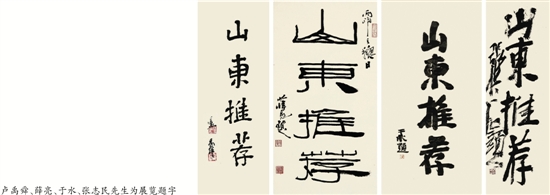 山東推荐
山東推荐
薛亮題
山東推荐
于水題
山東推荐
卢禹舜、薛亮、于水、张志民先生为展览题字